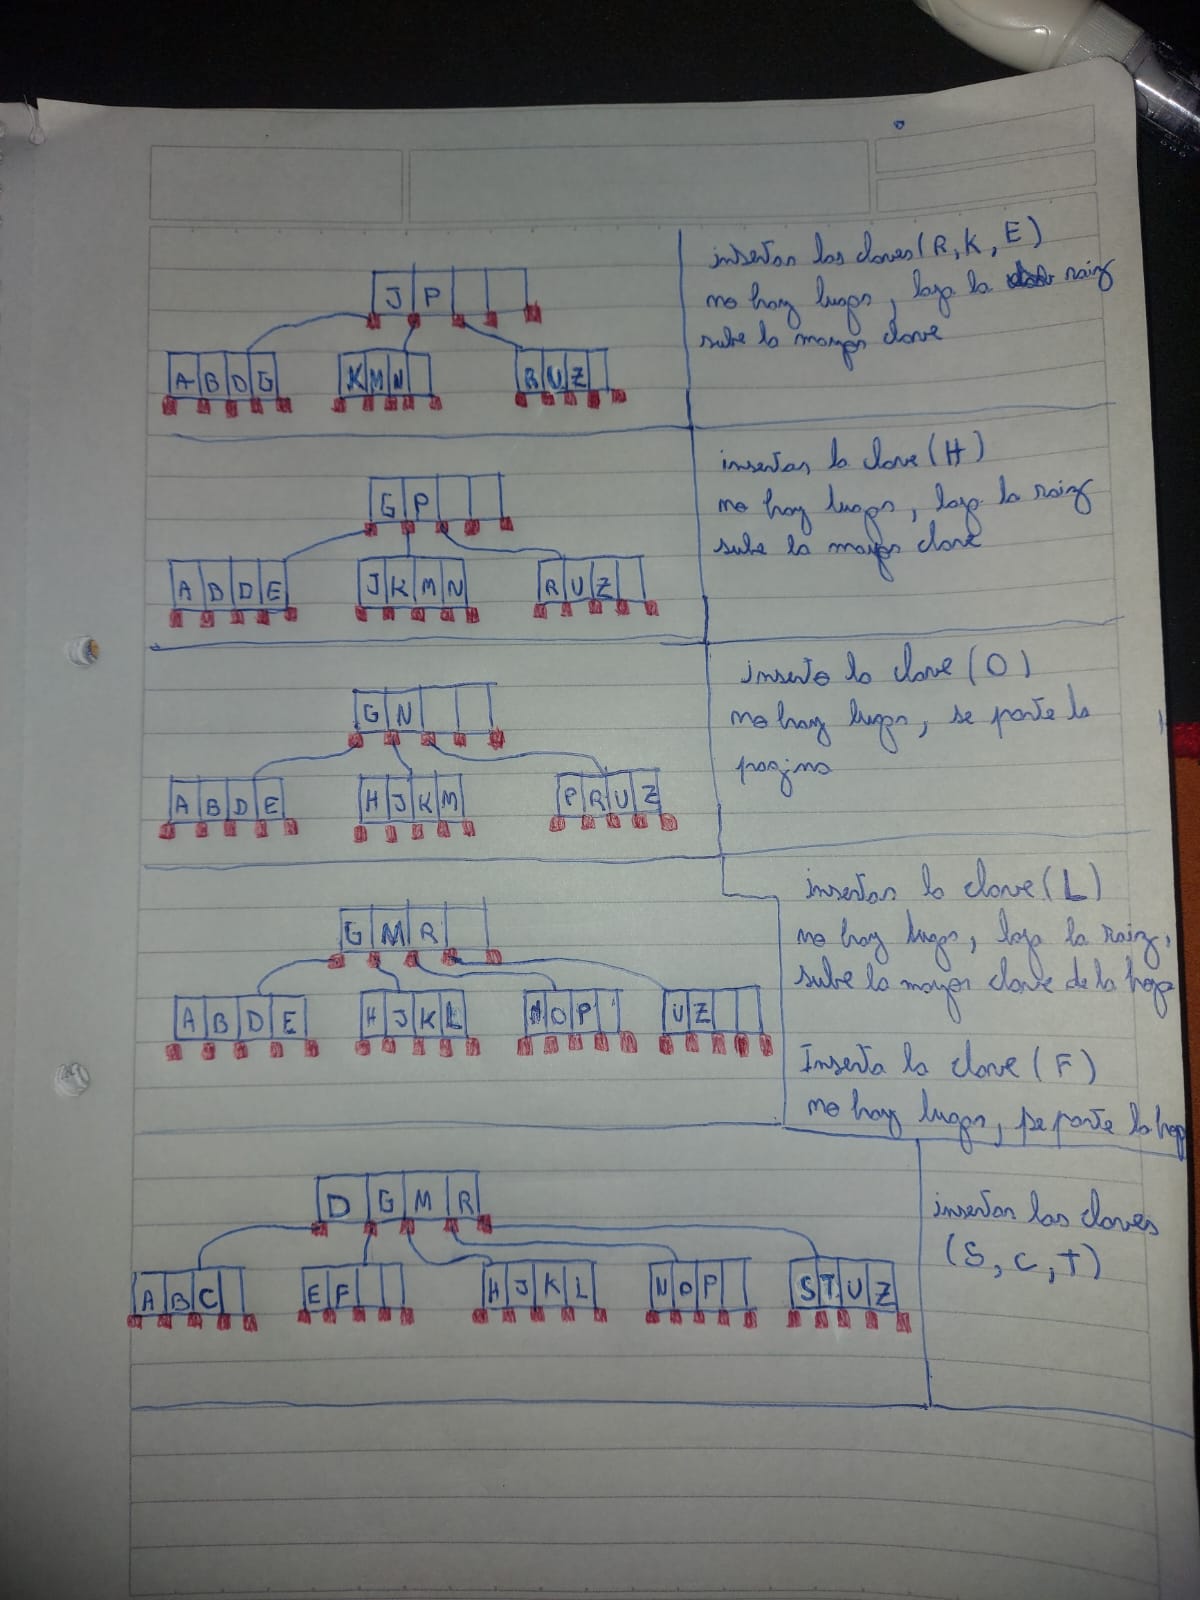 J P
A B D G K M N R U Z
insertar las claves (R, K, E)
no hay lugar, baja la raiz
sube la mayor clave
G P
A B D E J K M N R U Z
insertar la clave (H)
no hay lugar, baja la raiz
sube la mayor clave
G N
A B D E H J K M P R U Z
inserto la clave (O)
no hay lugar, se parte la
pagina
G M R
A B D E H J K L N O P U Z
insertar la clave (L)
no hay lugar, baja la raiz,
sube la mayor clave de la hoja
Inserta la clave (F)
no hay lugar, se parte la hoja
D G M R
A B C E F H J K L N O P S T U Z
insertar las claves
(S, C, T)